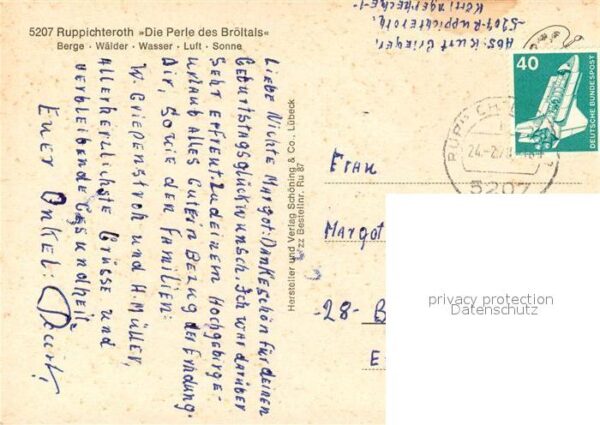 5207 Ruppichteroth »Die Perle des Bröltals«
Berge · Wälder · Wasser · Luft · Sonne
Abs: Kurt Krieger,
5207-Ruppichteroth,
40
DEUTSCHE BUNDESPOST
5207
Liebe Nichte Margot: Dankeschön für deinen
Geburtstagsglückwunsch. Ich war darüber
sehr erfreut. Zu deinem Hochgebirge-
urlaub alles Gute in Bezug der Erholung.
Dir, sowie den Familien:
W. Griepenstroh und H. Müller,
allerherzlichste Grüsse und
verbleibende Gesundheit
Euer Onkel: Kurt!
Hersteller und Verlag Schöning & Co., Lübeck
zz Bestellnr. Ru 87
Frau
Margot
-28- B
privacy protection
Datenschutz